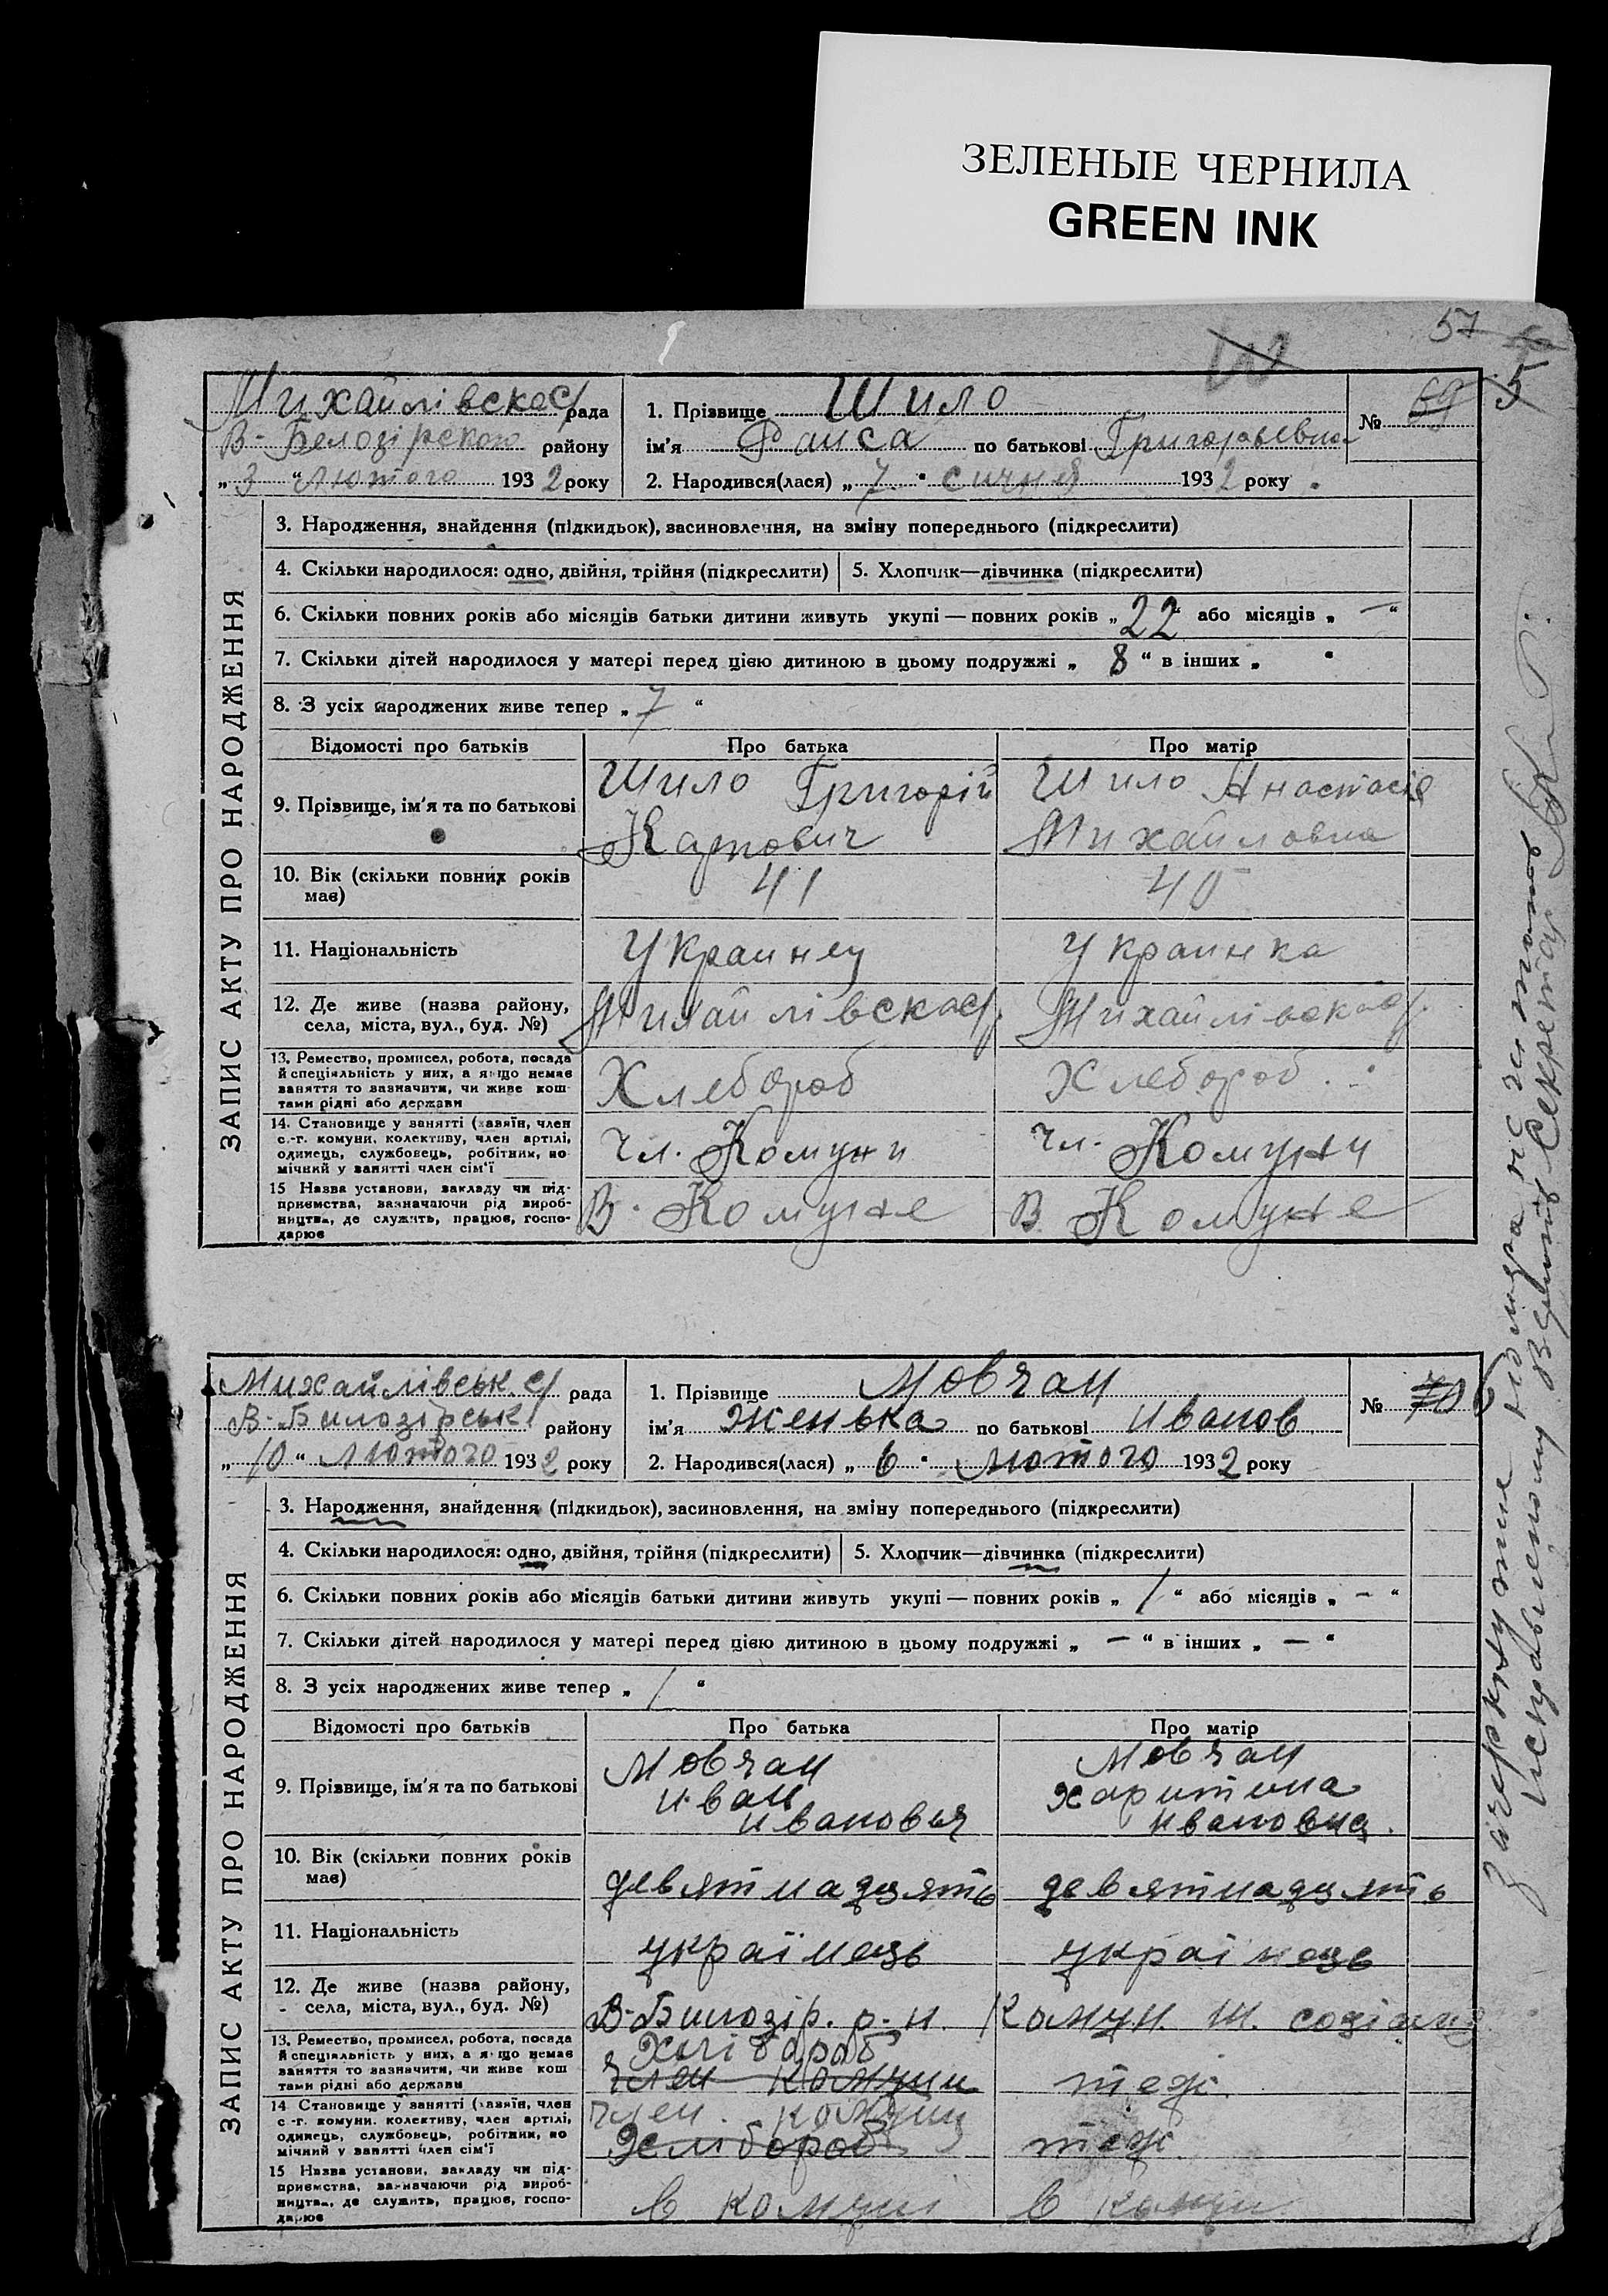 ЗЕЛЕНЫЕ ЧЕРНИЛА
GREEN INK
57
ЗАПИС АКТУ ПРО НАРОДЖЕННЯ
Михайлівская с/рада
В-Белозірского району
„3“ лютого 1932 року
1. Прізвище Шило
ім'я Раиса по батькові Григорьевна
№ 69 5
2. Народився(лася) „7“ сичня 1932 року
3. Народження, знайдення (підкидьок), засиновлення, на зміну попереднього (підкреслити)
4. Скільки народилося: одно, двійня, трійня (підкреслити) 5. Хлопчик—дівчинка (підкреслити)
6. Скільки повних років або місяців батьки дитини живуть укупі — повних років „22“ або місяців „—“
7. Скільки дітей народилося у матері перед цією дитиною в цьому подружжі „8“ в інших „ “
8. З усіх народжених живе тепер „7“
Відомості про батьків Про батька Про матір
9. Прізвище, ім'я та по батькові
Шило Григорій
Шило Анастасія
Михайловна
10. Вік (скільки повних років має) 41 40
11. Національність Украинец Украинка
12. Де живе (назва району, села, міста, вул., буд. №) Михайлівская с/р. Михайлівская с/р.
13. Ремество, промисел, робота, посада й спеціяльність у них, а якщо немає заняття то зазначити, чи живе коштами рідні або держави
Хлебороб Хлебороб
14. Становище у занятті (хазяїн, член с.-г. комуни, колективу, член артілі, одинець, службовець, робітник, помічний у занятті член сім'ї
Чл. Комуни Чл. Комуни
15 Назва установи, закладу чи підприємства, зазначаючи рід виробництва, де служить, працює, господарює
В. Комуне В Комуне
ЗАПИС АКТУ ПРО НАРОДЖЕННЯ
Михайлівськ. с/рада
В-Билозірськ. району
„10“ Лютого 1932 року
1. Прізвище Мовчан
ім'я Женька по батькові Иванов.
№ 70 6
2. Народився(лася) „6“ лютого 1932 року
3. Народження, знайдення (підкидьок), засиновлення, на зміну попереднього (підкреслити)
4. Скільки народилося: одно, двійня, трійня (підкреслити) 5. Хлопчик—дівчинка (підкреслити)
6. Скільки повних років або місяців батьки дитини живуть укупі — повних років „1“ або місяців „—“
7. Скільки дітей народилося у матері перед цією дитиною в цьому подружжі „—“ в інших „—“
8. З усіх народжених живе тепер „1“
Відомості про батьків Про батька Про матір
9. Прізвище, ім'я та по батькові
Мовчан Мовчан
Иван Харитина
Ивановыч Ивановна.
10. Вік (скільки повних років має) девятнадцять девятнадцять
11. Національність українець українець
12. Де живе (назва району, села, міста, вул., буд. №) В-Билозір. р-н. Комун. Ш. соціализ
13. Ремество, промисел, робота, посада й спеціяльність у них, а якщо немає заняття то зазначити, чи живе коштами рідні або держави
Хлібароб
член комуни теж.
14 Становище у занятті (хазяїн, член с-г. комуни, колективу, член артілі, одинець, службовець, робітник, помічний у занятті член сім'ї
член. комуни
Хлибороб теж.
15 Назва установи, закладу чи підприємства, зазначаючи рід виробництва, де служить, працює, господарює
в комуні в комуні
Зачеркнутые номера не читать
исправленому верить Секретар